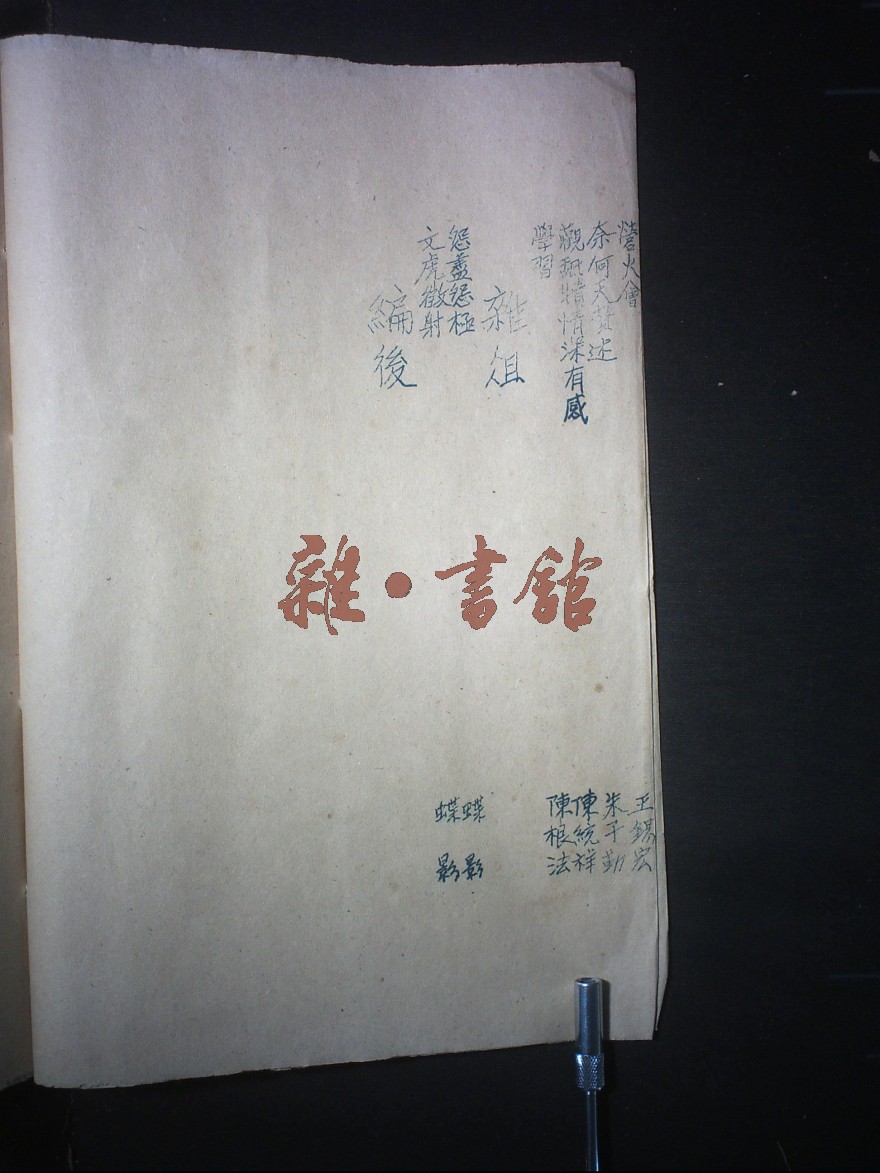 營火會 王錫宏
奈何天贅述 朱子勤
觀舐犢情深有感 陳統祥
學習 陳根法
雜俎
怨盡怨極 蝶影
文虎徵射 蝶影
編後
雜·書館